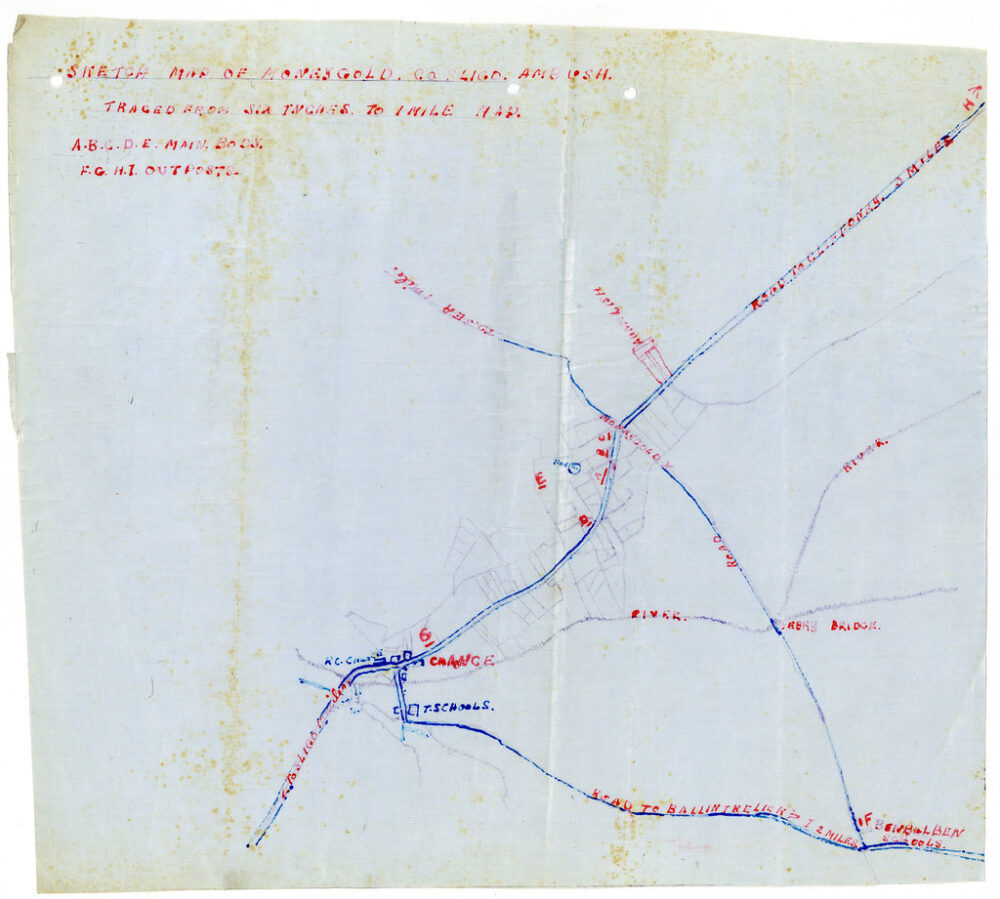 SKETCH MAP OF MONEYGOLD. CO SLIGO. AMBUSH.
TRACED FROM SIX INCHES. TO 1 MILE MAP.
A.B.C.D.E. MAIN BODY.
F.G.H.I. OUTPOSTS.
H
ROAD TO CLIFFONEY. 3 MILES
TO SEA 1 mile
MONEYGOLD X
D
E
B
RIVER.
ROAD
RIVER.
BRIDGE.
G
R.C. CHURCH
GRANGE
T. SCHOOLS.
TO SLIGO
ROAD TO BALLINTRELICK > I 2 MILES
F
BENBULBEN
SCHOOLS.